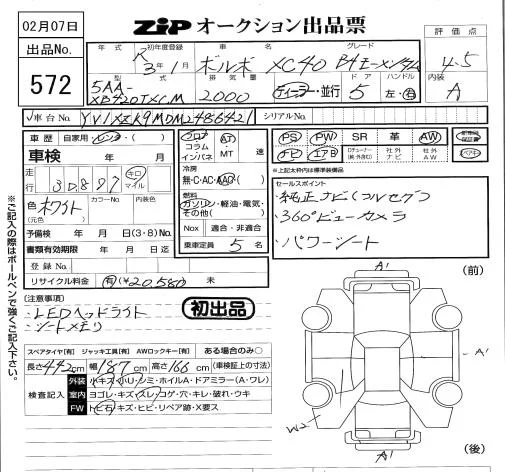 02月07日
出品No.
572
ZiP オークション出品票
評価点
4.5
内装
A
年式 初年度登録 車名 グレード
R3年1月 ボルボ XC40 B4
型式 排気量 ドア ハンドル
5AA-XB420TXCM 2000 ディーラー・並行 5 左・右
車台No. YV1XZK9MDM2486421 シリアルNo.
車歴 自家用・レンタ・( )
車検 年 月
走行 30,897 キロ マイル
色 ホワイト カラーNo. 内装色
(元色)
予備検 年 月 日(3・8)
書類有効期限 年 月 日迄
登録No.
リサイクル料金 有(¥20,580 未
フロア コラム インパネ AT・MT 速
冷房
無・C・AC・AAC・( )
燃料
ガソリン・軽油・電気・その他( )
Nox 適合・非適合
乗車定員 5 名
PS PW SR 革 AW
ナビ エアB 社外ナビ 社外AW
※上記太枠内は標準装備品
セールスポイント
・純正ナビ(フルセグ)
・360°ビューカメラ
・パワーシート
※ご記入の際はボールペンで強くご記入下さい。
(注意事項)
・LEDヘッドライト
・シートメモリ
初出品
スペアタイヤ[有] ジャッキ工具[有] AWロックキー[有] ある場合のみ○
長さ442cm 幅187cm 高さ166cm (車検証上の寸法)
検査記入
外装 小キズ・小U・シミ・ホイルA・ドアミラー(A・ワレ)
室内 ヨゴレ・キズ・スレ・コゲ・穴・キレ・破れ・ウキ
FW トビ石・キズ・ヒビ・リペア跡・X要ス
A'
(前)
A'
W2
A'
(後)